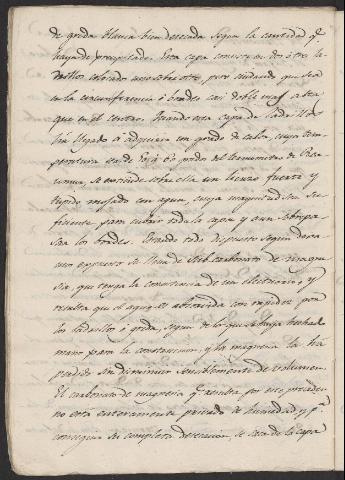 de greda blanca bien desecada segun la cantidad qe
haya de precipitado. Esta capa consiste en dos ó tres la-
drillos colocados uno sobre otro, pero cuidando que sea
en la circunferencia ó bordes casi doble mas alta
que en el centro. Cuando esta capa de ladrillos
han llegado á adquirir un grado de calor, cuya tem-
peratura sea de 50 á 60 grados del termometro de Reau-
mur, se estiende sobre ella un lienzo fuerte y
tupido mojado con agua, cuya magnitud sea su-
ficiente para cubrir toda la capa y aun sobrepa-
sar los bordes. Estando todo dispuesto segun dava-
mos espuesto se llena de Sub-carbonato de magne-
sia, que tenga la consistencia de un electuario, y
resulta que el agua es absorvida con rapidez por
los ladrillos ó greda, segun de lo que se haya hechado
mano para la construccion, y la magnesia la ha
perdido sin disminuir sensiblemente de volumen.
El carbonato de magnesia qe resulta por este procedimie-
no está enteramente privado de humedad, y pa
conseguir su completa desecacion, se saca de la capa